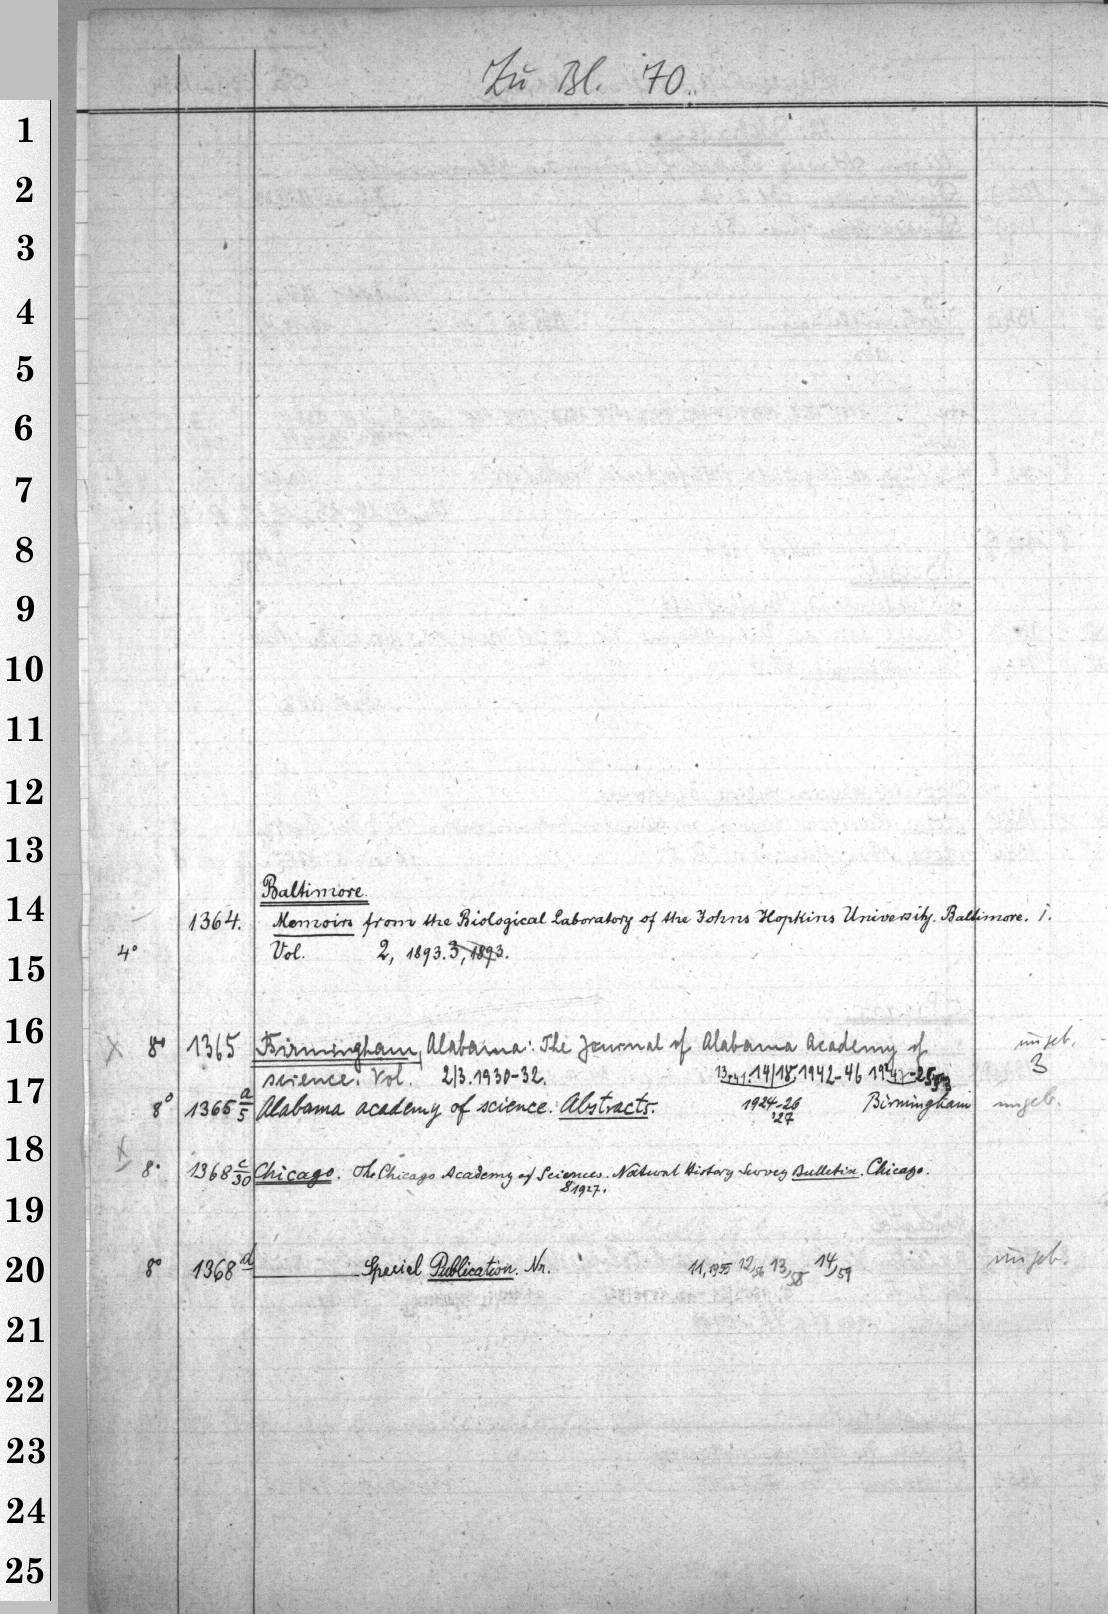 Zu Bl. 70.
1
2
3
4
5
6
7
8
9
10
11
12
13
14
15
16
17
18
19
20
21
22
23
24
25
Baltimore.
1364. Memoirs from the Biological Laboratory of the Johns Hopkins University. Baltimore. I.
4° Vol. 2, 1893. 3, 1893.
X 8° 1365 Birmingham, Alabama: The Journal of Alabama Academy of ungeb.
science. Vol. 2/3. 1930-32. 13.1941. 14/18, 1942-46 3
8° 1365 a/5 Alabama academy of science. Abstracts. 1924-26 Birmingham ungeb.
'27
X 8° 1368 c/30 Chicago. The Chicago Academy of Sciences. Natural History Survey Bulletin. Chicago.
8 1927.
8° 1368 d Special Publication. Nr. 11, 1955 12/56 13/58 14/59 ungeb.